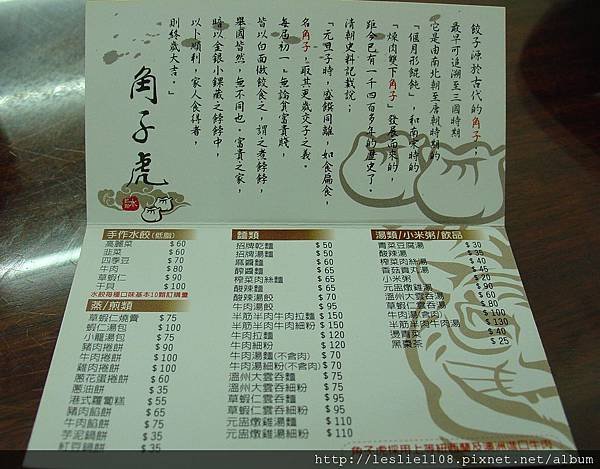 餃子源於古代的角子，
最早可追溯至三國時期，
它是由南北朝至唐朝時期的
「偃月形餛飩」，和南宋時的
「煉肉雙下角子」發展而來的，
距今已有一千四百多年的歷史了。
清朝史料記載說：
「元旦子時，盛饌同離，如食扁食，
名角子，取其更歲交子之義。
每屆初一，無論貧富貴賤，
皆以白麵做餃食之，謂之煮餑餑，
舉國皆然，無不同也。富貴之家，
暗以金銀小錁藏之餑餑中，
以卜順利，家人食得者，
則終歲大吉。」
角子虎
手作水餃(低脂)
高麗菜 $60
韭菜 $60
四季豆 $70
牛肉 $80
草蝦仁 $90
干貝 $100
水餃每種口味基本10顆訂購量
蒸/煎類
草蝦仁燒賣 $75
蝦仁湯包 $100
小籠湯包 $75
豬肉捲餅 $90
牛肉捲餅 $100
雞肉捲餅 $100
蔥花蛋捲餅 $60
蔥油餅 $35
港式蘿蔔糕 $55
豬肉餡餅 $65
牛肉餡餅 $75
芋泥鍋餅
紅豆鍋餅
麵類
招牌乾麵 $50
招牌湯麵 $50
麻醬麵 $60
醡醬麵 $65
榨菜肉絲麵 $65
酸辣麵 $65
酸辣湯餃 $70
牛肉湯餃 $95
半筋半肉牛肉拉麵 $150
半筋半肉牛肉細粉 $150
牛肉拉麵 $120
牛肉細粉 $120
牛肉湯麵(不含肉) $70
牛肉湯細粉(不含肉) $70
溫州大雲吞麵 $75
溫州大雲吞細粉 $75
草蝦仁雲吞麵 $95
草蝦仁雲吞細粉 $95
元盅燉雞湯麵 $110
元盅燉雞湯細粉 $110
湯類/小米粥/飲品
青菜豆腐湯 $30
酸辣湯 $35
榨菜肉絲湯 $45
香菇貢丸湯
小米粥 $20
元盅燉雞湯
溫州大雲吞湯 $60
草蝦仁雲吞湯
牛肉湯(單) $100
半筋半肉牛肉湯 $130
燙青菜 $40
黑棗茶 $25
角子虎採用上等紐西蘭及澳洲進口牛肉
http://leslie1108.pixnet.net/album